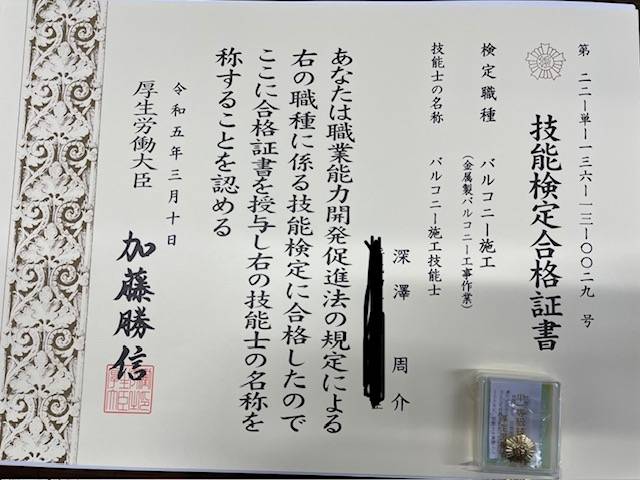 第 二二ー単ー一三六ー一三ー〇〇二九 号
技能検定合格証書
検定職種 バルコニー施工
(金属製バルコニー工事作業)
技能士の名称 バルコニー施工技能士
深澤 周介
あなたは職業能力開発促進法の規定による
右の職種に係る技能検定に合格したので
ここに合格証書を授与し右の技能士の名称を
称することを認める
令和五年三月十日
厚生労働大臣 加藤勝信